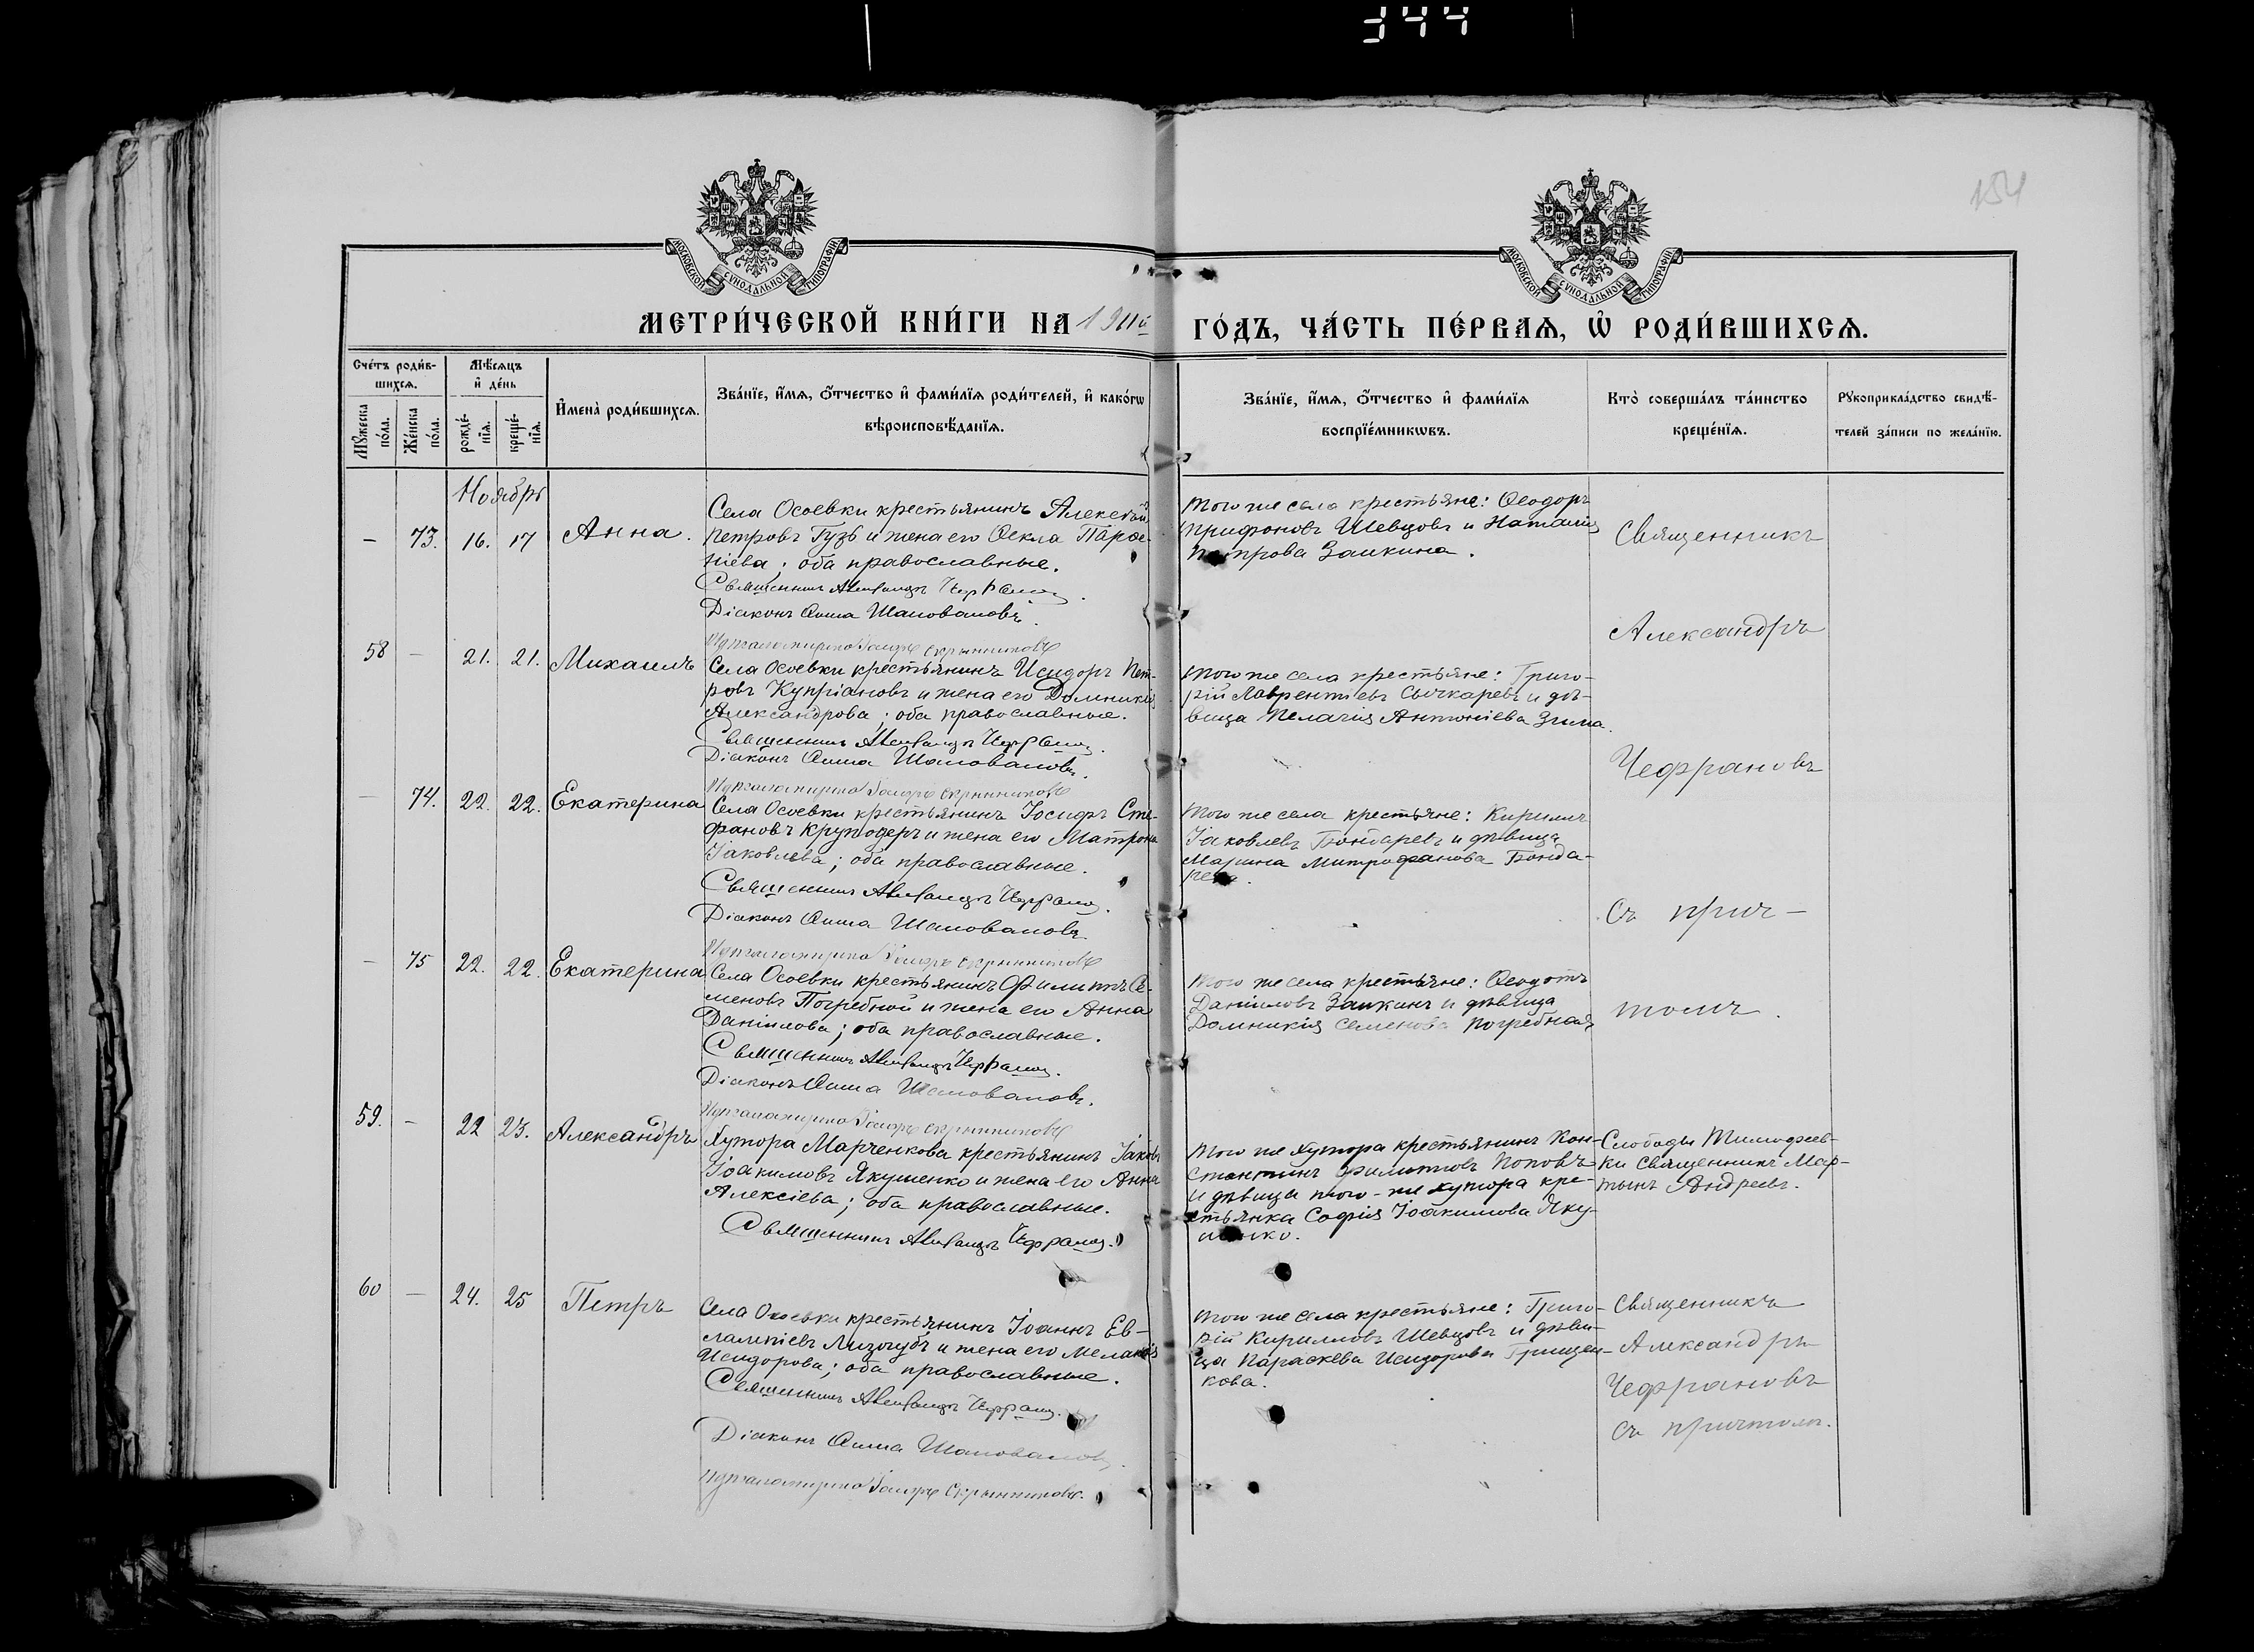 344
154
МОСКОВСКОЙ СѴНОДАЛЬНОЙ ТИПОГРАФІИ
МОСКОВСКОЙ СѴНОДАЛЬНОЙ ТИПОГРАФІИ
МЕТРИ́ЧЕСКОЙ КНИ́ГИ НА 1911й ГО́ДЪ, ЧА́СТЬ ПЕ́РВАѦ, Ѡ҆ РОДИ́ВШИХСѦ.
Сче́тъ роди́в-
шихсѧ.
Мꙋ́жеска по́ла.
Же́нска по́ла.
Мѣ́сѧцъ
и҆ де́нь
рожде́-
нїѧ.
креще́-
нїѧ.
И҆мена̀ роди́вшихсѧ.
Зва́нїе, и҆́мѧ, ѻ҆́тчество и҆ фами́лїѧ роди́телей, и҆ како́гѡ
вѣроисповѣ́данїѧ.
Зва́нїе, и҆́мѧ, ѻ҆́тчество и҆ фами́лїѧ
воспрїе́мникѡвъ.
Кто̀ соверша́лъ та́инство
креще́нїѧ.
Рꙋкоприкла́дство свидѣ́-
телей за́писи по жела́нїю.
Ноябрь
– 73. 16. 17 Анна.
Села Осоевки крестьянинъ Алексѣй
Петровъ Гузь и жена его Ѳекла Парѳе-
ніева; оба православные.
Священникъ Александръ Чефрановъ.
Діаконъ Шаповаловъ.
Того же села крестьяне: Ѳеодоръ
Трифоновъ Шевцовъ и Наталія
Петрова Заикина.
Священникъ
Александръ
Чефрановъ
Съ прич-
томъ.
58 – 21. 21. Михаилъ
Села Осоевки крестьянинъ Исидоръ Пет-
ровъ Купріановъ и жена его Домникія
Александрова; оба православные.
Священникъ Александръ Чефрановъ.
Діаконъ Шаповаловъ.
Того же села крестьяне: Григо-
рій Лаврентіевъ Сычкаревъ и дѣ-
вица Пелагія Антоніева Зима.
– 74. 22. 22. Екатерина
Села Осоевки крестьянинъ Іосифъ Сте-
фановъ Крутодеръ и жена его Матрона
Іаковлева; оба православные.
Священникъ Александръ Чефрановъ.
Діаконъ Шаповаловъ
Того же села крестьяне: Кириллъ
Іаковлевъ Бондаревъ и дѣвица
Марина Митрофанова Бонда-
рева.
– 75 22. 22. Екатерина
Села Осоевки крестьянинъ Филиппъ Се-
меновъ Погребной и жена его Анна
Даніилова; оба православные.
Священникъ Александръ Чефрановъ.
Діаконъ Шаповаловъ.
Того же села крестьяне: Ѳеодотъ
Данииловъ Заикинъ и дѣвица
Домникія Семенова Погребная
59. – 22 23. Александръ
Хутора Марченкова крестьянинъ Іаковъ
Іоакимовъ Якушенко и жена его Анна
Алексіева; оба православные.
Священникъ Александръ Чефрановъ.
Того же хутора крестьянинъ Кон-
стантинъ Филипповъ Поповъ
и дѣвица того-же хутора кре-
стьянка Софія Іоакимова Яку-
шенко.
Слободы Тимофеев-
ки Священникъ Мар-
тынъ Андреевъ.
60 – 24. 25 Петръ
Села Осоевки крестьянинъ Іоаннъ Ев-
лампіевъ Лизогубъ и жена его Меланія
Исидорова; оба православные.
Священникъ Александръ Чефрановъ.
Діаконъ Шаповаловъ.
Того же села крестьяне: Григо-
рій Кирилловъ Шевцовъ и дѣви-
ца Параскева Исидорова Грищен-
кова.
Священникъ
Александръ
Чефрановъ
съ причтомъ.